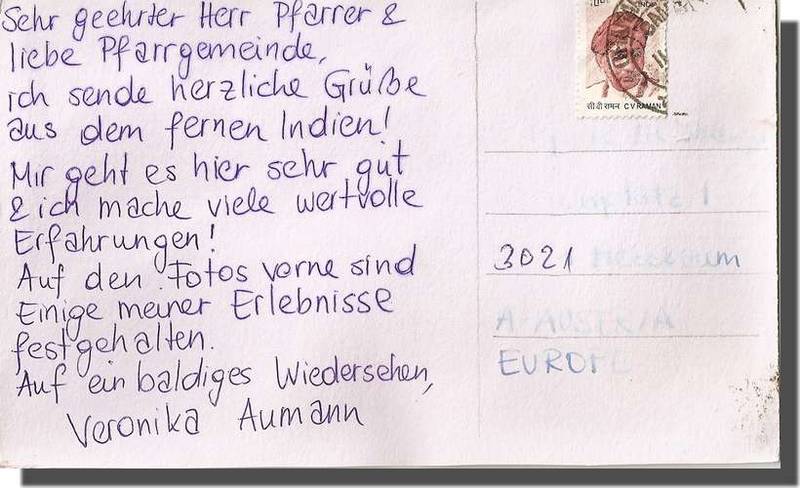 Sehr geehrter Herr Pfarrer &
liebe Pfarrgemeinde,
ich sende herzliche Grüße
aus dem fernen Indien!
Mir geht es hier sehr gut
& ich mache viele wertvolle
Erfahrungen!
Auf den Fotos vorne sind
Einige meiner Erlebnisse
festgehalten.
Auf ein baldiges Wiedersehen,
Veronika Aumann
INDIA
सी वी रामन C V RAMAN
3021
A-AUSTRIA
EUROPE